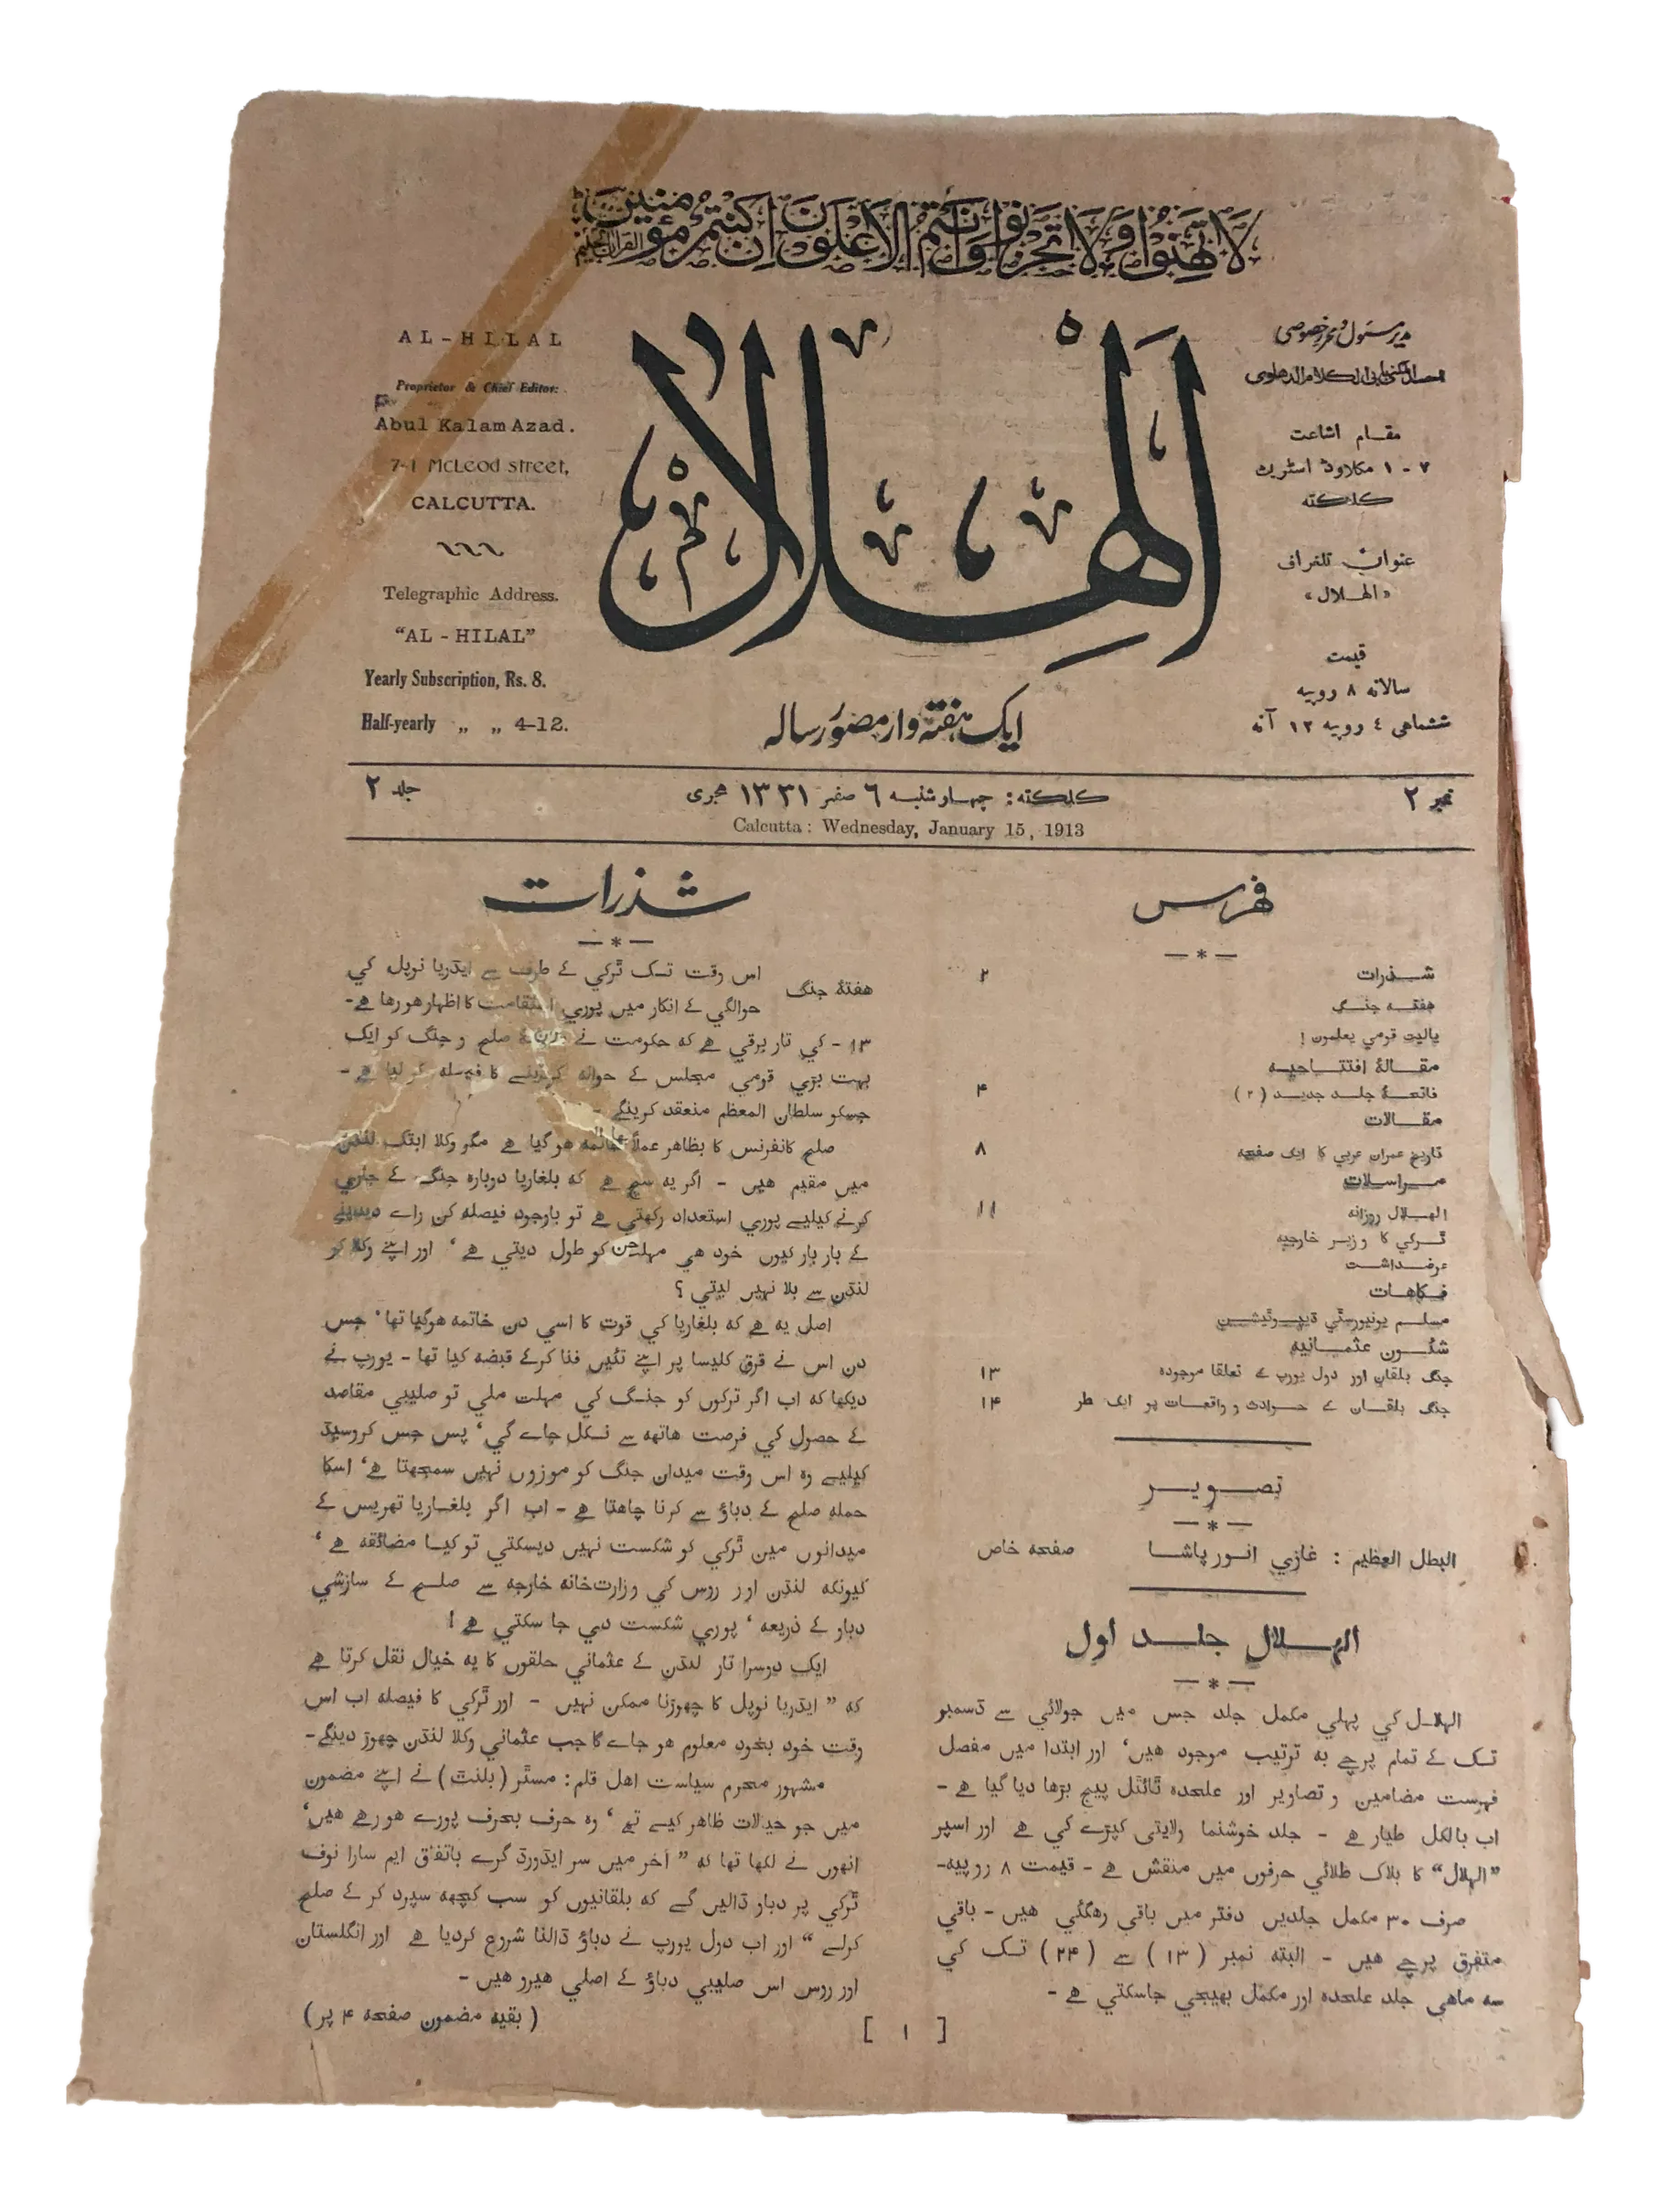 لا تهنوا ولا تحزنوا وانتم الاعلون ان كنتم مؤمنين
AL-HILAL
Proprietor & Chief Editor:
Abul Kalam Azad.
7-1 McLeod street,
CALCUTTA.
Telegraphic Address.
"AL-HILAL"
Yearly Subscription, Rs. 8.
Half-yearly „ „ 4-12.
الهلال
ایک ہفتہ وار مصور رسالہ
مدیر مسئول و محرر خصوصی
مقام اشاعت
۷ - ۱ مکلاوڈ اسٹریٹ
کلکته
عنوان تلغراف
«الهلال»
قیمت
سالانه ۸ روپیه
ششماهی ٤ روپیه ۱۲ آنه
نمبر ۲
کلکته: چهارشنبه ٦ صفر ۱۳۳۱ هجری
جلد ۲
Calcutta: Wednesday, January 15, 1913
فهرس
شذرات ۲
هفتۀ جنگ
یالیت قومي یعلمون!
مقالۀ افتتاحیه
فاتحۀ جلد جدید (۲) ۴
مقالات
تاریخ عمران عربي کا ایک صفحه ۸
مراسلات
الهلال روزانه ۱۱
ٹرکي کا وزیر خارجیه
عرضداشت
فکاهات
مسلم یونیورسٹي ڈیپوٹیشن
شئون عثمانیه
جنگ بلقان اور دول یورپ کے تعلقا موجودہ ۱۳
جنگ بلقان کے حوادث و واقعات پر ایک نظر ۱۴
تصویر
البطل العظیم: غازي انور پاشا صفحه خاص
الهلال جلد اول
الهلال کي پهلي مکمل جلد جس میں جولائي سے ڈسمبر
تک کے تمام پرچے به ترتیب موجود هیں' اور ابتدا میں مفصل
فهرست مضامین و تصاویر اور علحدہ ٹائٹل پیج بڑھا دیا گیا هے -
اب بالکل طیار هے - جلد خوشنما ولایتی کپڑے کي هے اور اسپر
"الهلال" کا بلاک طلائي حرفوں میں منقش هے - قیمت ۸ روپیه-
صرف ۳۰ مکمل جلدیں دفتر میں باقي رهگئي هیں - باقي
متفرق پرچے هیں - البته نمبر (۱۳) سے (۲۴) تک کي
سه ماهي جلد علحدہ اور مکمل بهیجي جاسکتي هے -
شذرات
هفتۀ جنگ
اس وقت تک ٹرکي کے طرف سے ایڈریا نوپل کي
حوالگي کے انکار میں پوري استقامت کا اظهار هورها هے-
۱۳ - کي تار برقي هے که حکومت نے صلح و جنگ کو ایک
بهت بڑي قومي مجلس کے حواله کردینے کا فیصله کر لیا هے -
جسکو سلطان المعظم منعقد کرینگے -
صلح کانفرنس کا بظاهر عملاً خاتمه هوگیا هے مگر وکلا ابتک لنڈن
میں مقیم هیں - اگر یه سچ هے که بلغاریا دوبارہ جنگ کے جاري
کرنے کیلیے پوري استعداد رکهتي هے تو باوجود فیصله کن راے دیدینے
کے بار بار کیوں خود هي مهلت کو طول دیتي هے' اور اپنے وکلا کو
لنڈن سے بلا نهیں لیتي؟
اصل یه هے که بلغاریا کي قوت کا اسي دن خاتمه هوگیا تها' جس
دن اس نے قرق کلیسا پر اپنے تئیں فنا کرکے قبضه کیا تها - یورپ نے
دیکها که اب اگر ترکوں کو جنگ کي مهلت ملي تو صلیبي مقاصد
کے حصول کي فرصت هاتهه سے نکل جاے گي' پس جس کروسیڈ
کیلیے وہ اس وقت میدان جنگ کو موزوں نهیں سمجهتا هے' اسکا
حمله صلح کے دباؤ سے کرنا چاهتا هے - اب اگر بلغاریا تهریس کے
میدانوں میں ٹرکي کو شکست نهیں دیسکتي تو کیا مضائقه هے'
کیونکه لنڈن اور روس کي وزارت خانه خارجه سے صلح کے سازشي
دباو کے ذریعه' پوري شکست دي جا سکتي هے!
ایک دوسرا تار لنڈن کے عثماني حلقوں کا یه خیال نقل کرتا هے
که " ایڈریا نوپل کا چهوڑنا ممکن نهیں - اور ٹرکي کا فیصله اب اس
وقت خود بخود معلوم هو جاے گا جب عثماني وکلا لنڈن چهوڑ دینگے-
مشهور محرم سیاست اهل قلم: مسٹر (بلنٹ) نے اپنے مضمون
میں جو خیالات ظاهر کیے تهے' وہ حرف بحرف پورے هورهے هیں'
انهوں نے لکها تها که " آخر میں سر ایڈورڈ گرے باتفاق ایم سارا نوف
ٹرکي پر دباو ڈالیں گے که بلقانیوں کو سب کچهه سپرد کر کے صلح
کرلے " اور اب دول یورپ نے دباؤ ڈالنا شروع کردیا هے اور انگلستان
اور روس اس صلیبي دباؤ کے اصلي هیرو هیں -
(بقیه مضمون صفحه ۴ پر)
[ ۱ ]